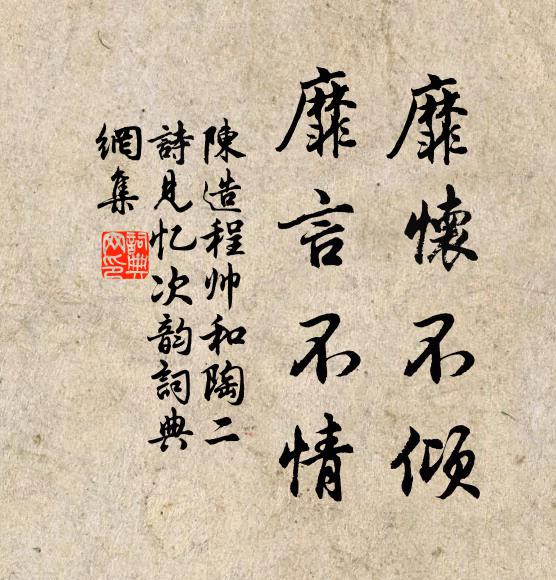 靡懷不傾
靡言不情
陳造程帅和陶二
詩見忆次韵詞典
網集
詞典
网印